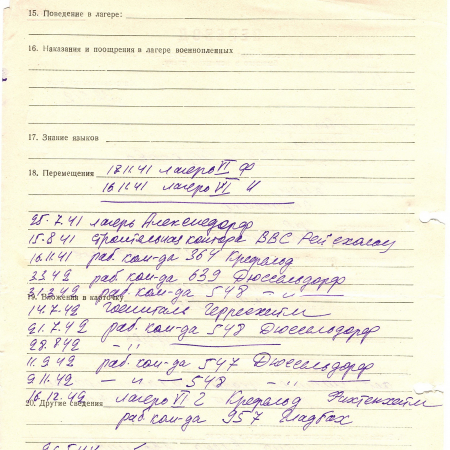 15. Поведение в лагере:
16. Наказания и поощрения в лагере военнопленных
17. Знание языков
18. Перемещения 17.11.41 лагерь VI Ф
16.11.41 лагерь VI И
25.7.41 лагерь Александорф
15.8.41 строительная контора ВВС
16.11.41 раб. ком-да 364 Крефельд
раб ком-да 639 Дюссельдорф
раб. ком-да 548 — „ —
19. Вложения в карточку
14.7.42 госпиталь Герресхейм
21.7.42 раб. ком-да 548 Дюссельдорф
28.8.42 — „ —
11.9.42 раб. ком-да 547 Дюссельдорф
9.11.42 — „ — 548 — „ —
16.12.42 лагерь VI Крефельд Фихтенхейм
20. Другие сведения
раб ком-да 957 Гладбах